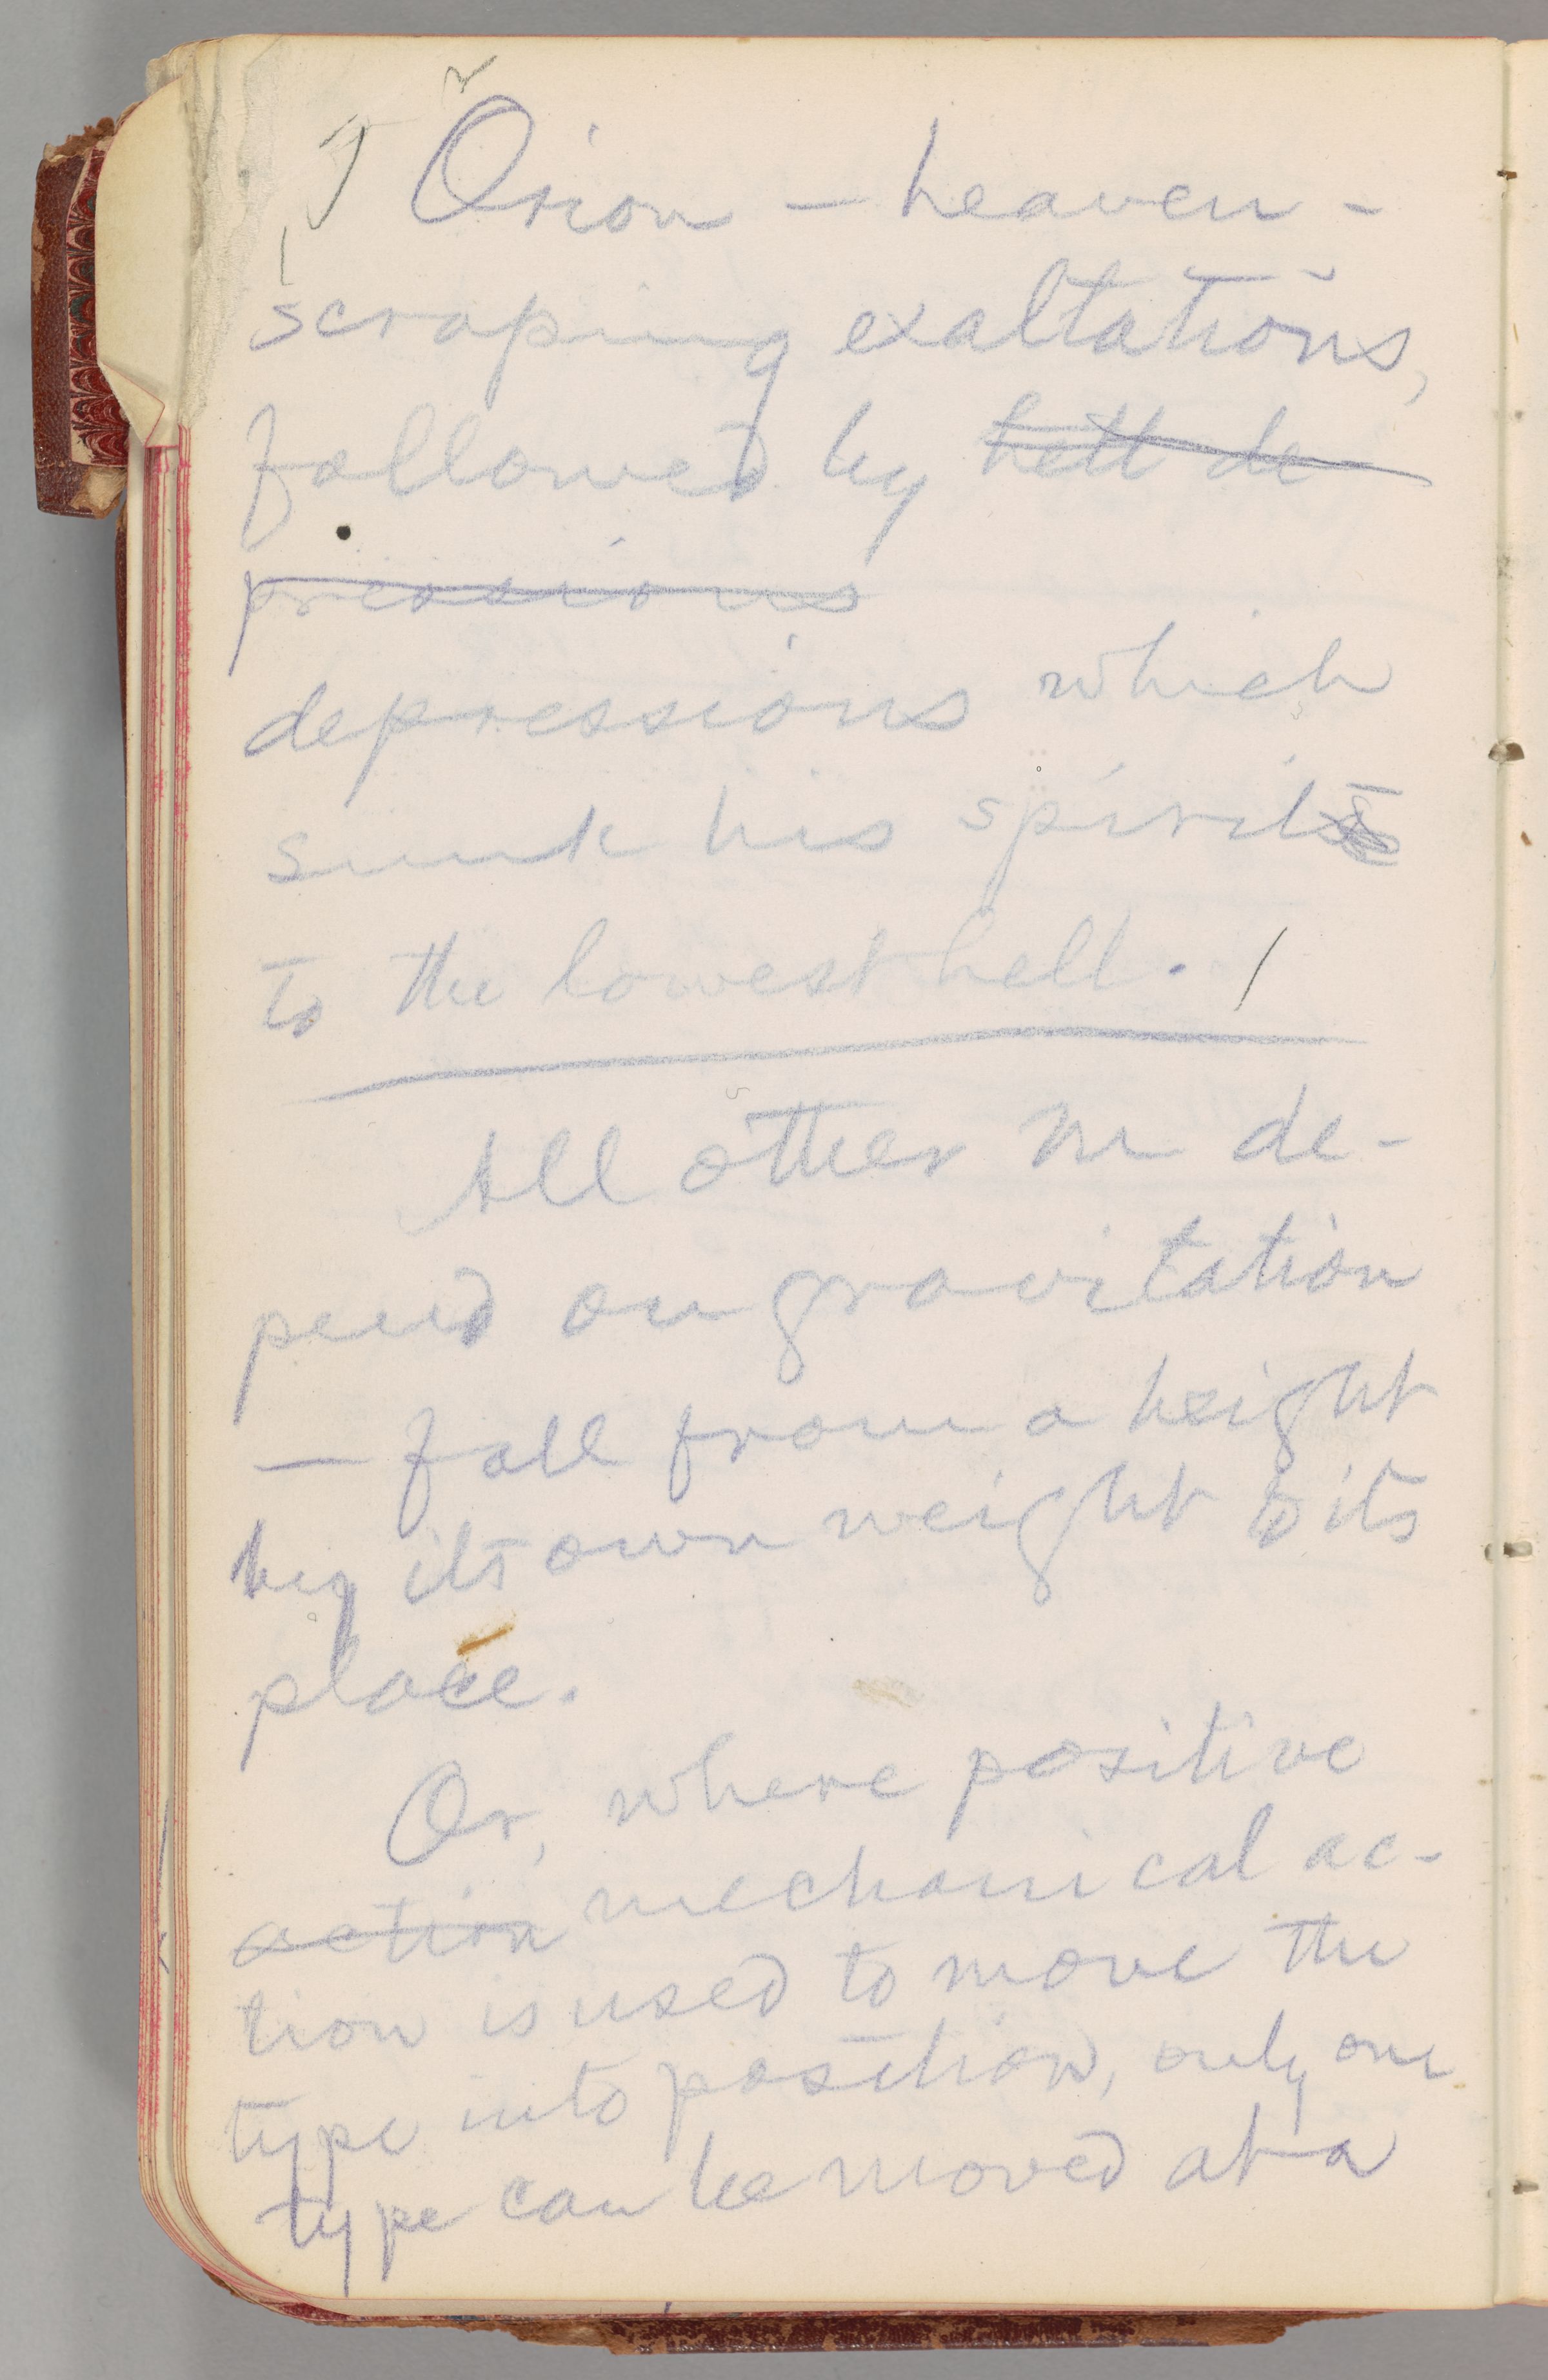 Orion – heaven-
scraping exaltations,
followed by hell de-
pressions
depressions which
sunk his spirit
to the lowest hell.
All other m de-
pend on gravitation
— fall from a height
by its own weight to its
place.
Or, where positive
action mechanical ac-
tion is used to move the
type into position, only one
type can be moved at a